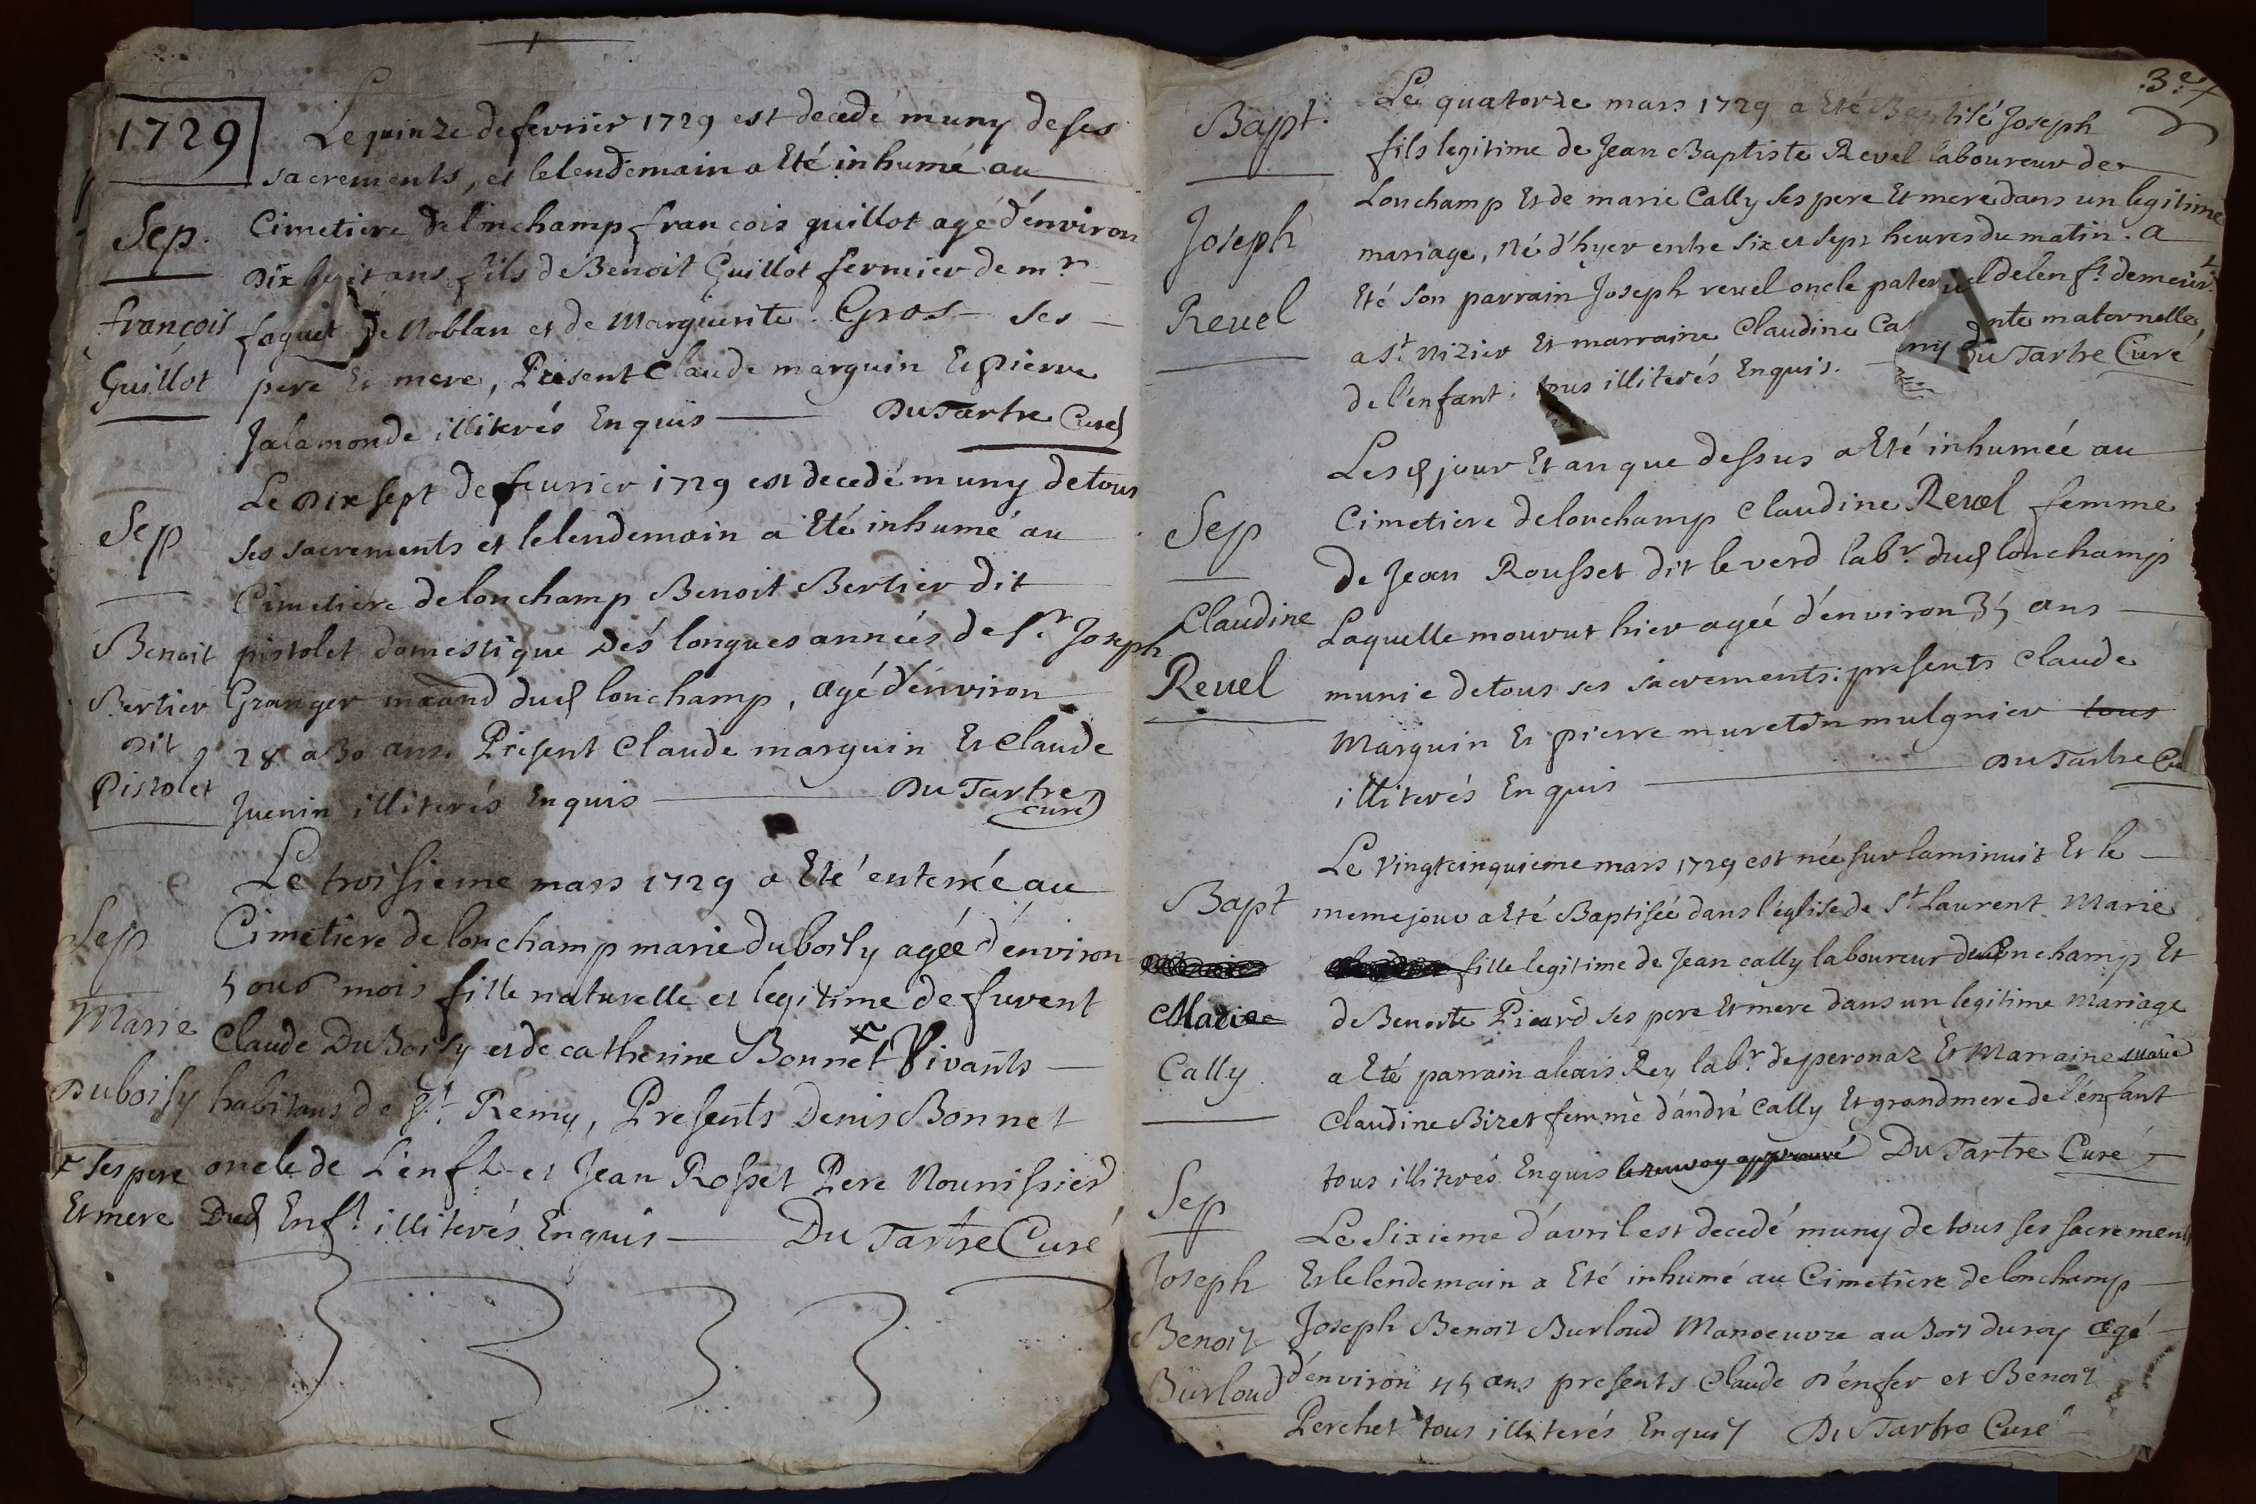 1729
Le quinze de fevrier 1729 est decedé muny de ses
sacrements, et le lendemain a Eté inhumé au
Sep. Cimetiere de lonchamp françois guillot agé d'environ
Dix huit ans fils de Benoit Guillot fermier de mr
françois faguet De Noblan et de Marguerite Gros ses
Guillot pere Et mere, Present Claude marguin Et pierre
Jalamonde illiterés Enquis Du Tartre Curé
Le Dix sept de feurier 1729 est decedé muny de tous
Sep ses sacrements et le lendemain a Eté inhumé au
Cimetiere de lonchamp Benoit Bertier dit
Benoit pistolet domestique Dés longues années de sr. Joseph
Bertier Granger duq lonchamp, agé d'environ
Dit 28 a 30 ans. Present Claude marguin Et Claude
Pistolet Juenin illiterés Enquis Du Tartre
curé
Le troisieme mars 1729 a Eté enterrée au
Sep Cimetiere de lonchamp marie duboisy agée d'environ
5 ou 6 mois fille naturelle et legitime de furent
Marie Claude DuBoisy et de catherine Bonnet x Vivants
Duboisy habitans de st Remy, Presents Denis Bonnet
x Ses pere oncle de L'enft et Jean Rosset Pere Nourissier
Et mere Duq Enft illiterés Enquis Du Tartre Curé
3e
Bapt. Le quatorze mars 1729 a Eté Baptisé Joseph
fils legitime de Jean Baptiste Revel laboureur de
Lonchamp Et de marie Cally ses pere Et mere dans un legitime
Joseph mariage, Né d'hyer entre six et sept heures du matin. a
Reuel Eté son parrain Joseph reuel oncle paternel de lenft. demeurt
a st Nizier Et marraine Claudine Ca nte maternelle,
de l'enfant; tous illiterés Enquis. Du Tartre Curé
Lesq jour Et an que dessus a Eté inhumée au
Sep Cimetiere de lonchamp Claudine Revel femme
de Jean Rousset dit le verd labr. duq lonchamp
Claudine Laquelle mourut hier agée d'environ 35 ans
Reuel munie de tous ses sacrements: presents Claude
Marguin Et pierre mureton mulgnier tous
illiterés Enquis Du Tartre Cu
Le Vingtcinquieme mars 1729 est née sur la minuit Et le
Bapt meme jour a Eté Baptisée dans l'église de St Laurent Marie
fille legitime de Jean cally laboureur de lonchamp Et
Marie de Benoite Picard ses pere Et mere dans un legitime Mariage
Cally a Eté parrain alexis Rey labr. de peronaz Et Marraine marie
Claudine Bizet femme d'andré Cally Et grandmere de l'enfant
tous illiterés Enquis le renvoy approuvé Du Tartre Curé
Sep Le Sixieme d'avril est decedé muny de tous ses sacrements
Joseph Et le lendemain a Eté inhumé au Cimetiere de lonchamp
Benoit Joseph Benoit Burloud Manoeuvre au Bois du roy agé
Burloud d'environ 45 ans presents Claude D'énfer et Benoit
Perchet tous illiterés Enquis Du Tartre Curé